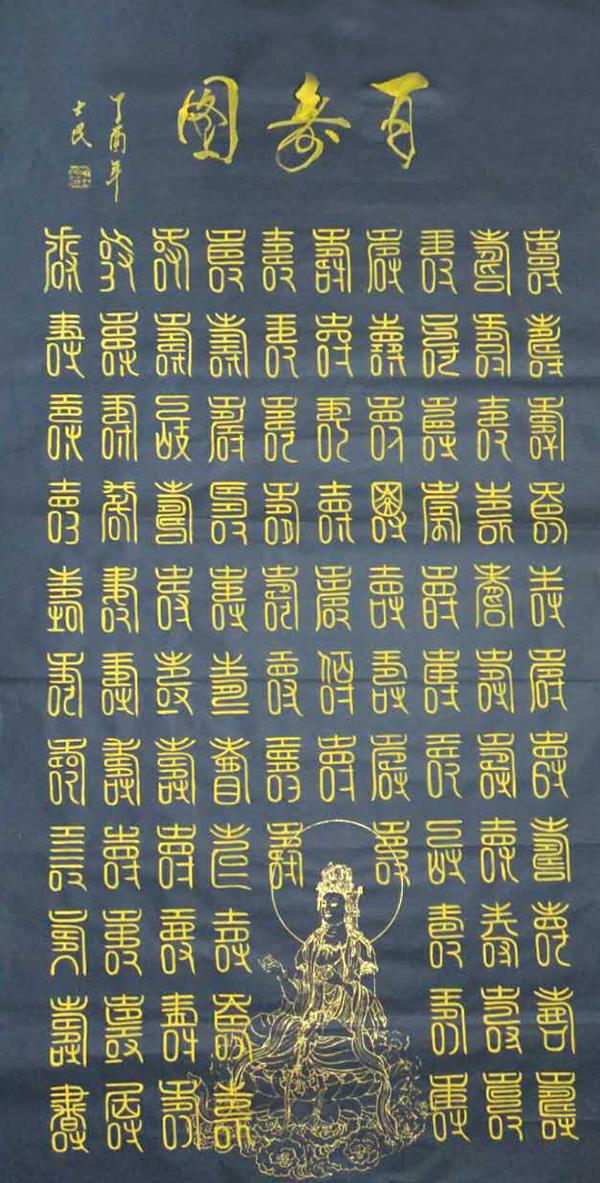 百寿图
壽壽壽壽壽壽壽壽壽壽壽
壽壽壽壽壽壽壽壽壽壽壽
壽壽壽壽壽壽壽壽壽壽壽
壽壽壽壽壽壽壽壽
壽壽壽壽壽壽壽
壽壽壽壽壽壽壽壽
壽壽壽壽壽壽壽壽壽壽壽
壽壽壽壽壽壽壽壽壽壽壽
壽壽壽壽壽壽壽壽壽壽壽
壽壽壽壽壽壽壽壽壽壽壽
丁酉年
士民